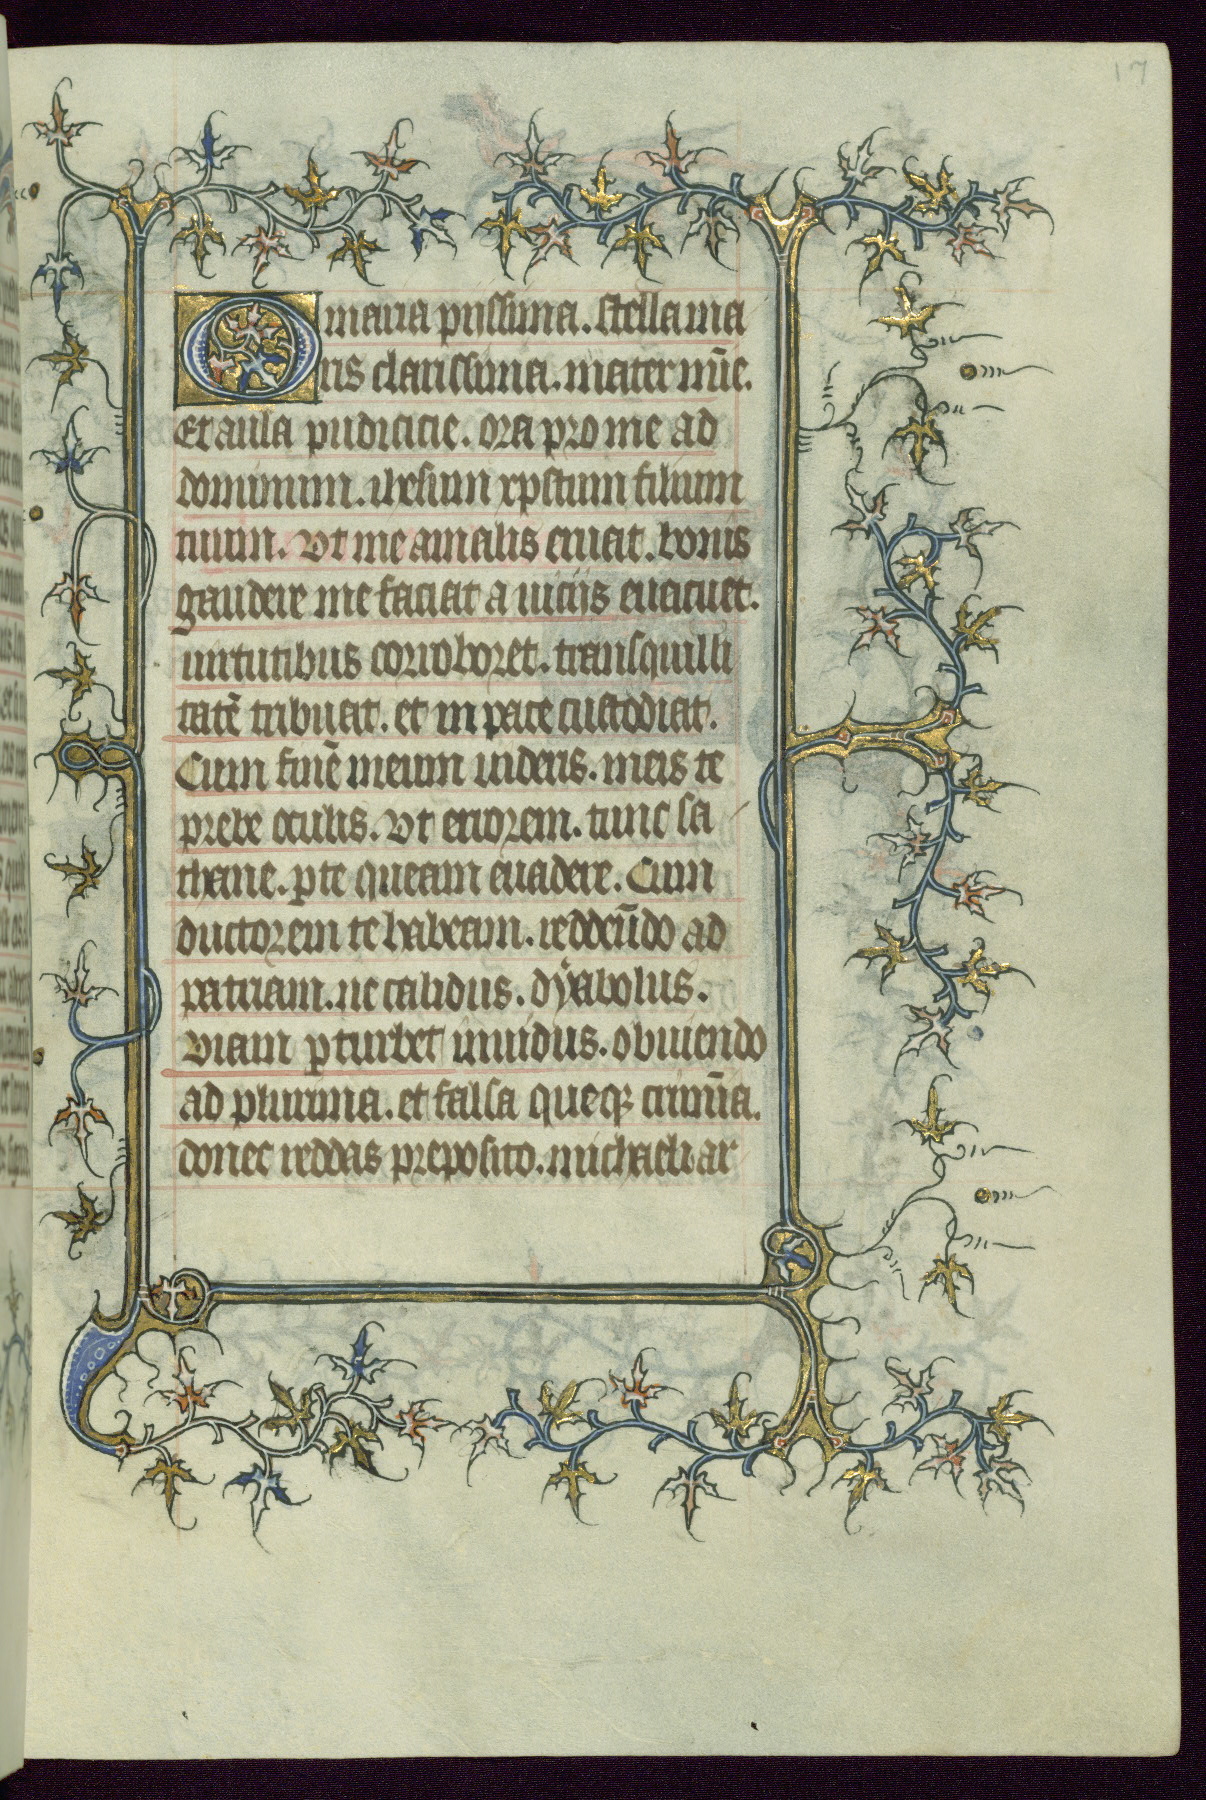 17
O maria piissima. stella ma
ris clarissima. mater mie.
Et aula pudicicie. ora pro me ad
dominum. ihesum xpistum filium
tuum. Vt me a malis eruat. bonis
gaudere me faciat a uiciis euacuet.
uirtutibus corroboret. transquilli
tatē tribuat. et in pace custodiat.
Cum finē meum uideris. meis te
prebe oculis. Vt errorem. tunc sa
thane. p te queam euadere. Cum
ductorem te habeam. reddeūdo ad
patriam. ne calidus. dyabolus.
Viam pturbet inuidus. obiuiendo
ad plurima. et falsa queqz crimīa.
donec reddas preposito. michaeli ar